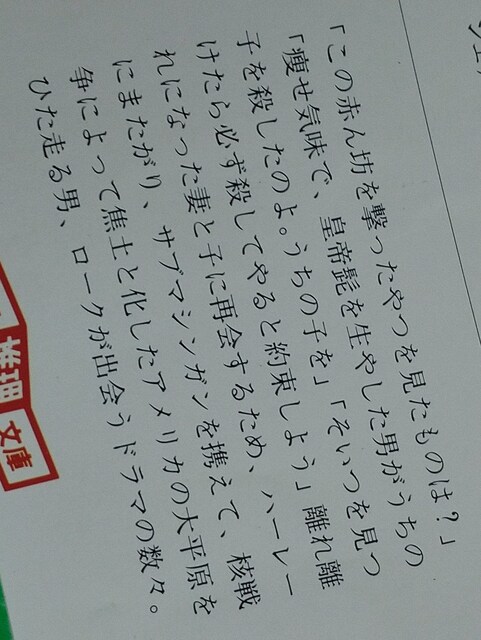 「この赤ん坊を撃ったやつを見たものは？」
「痩せ気味で、皇帝髭を生やした男がうちの
子を殺したのよ。うちの子を」「そいつを見つ
けたら必ず殺してやると約束しよう」離れ離
れになった妻と子に再会するため、ハーレー
にまたがり、サブマシンガンを携えて、核戦
争によって焦土と化したアメリカの大平原を
ひた走る男、ロークが出会うドラマの数々。
推理
文庫